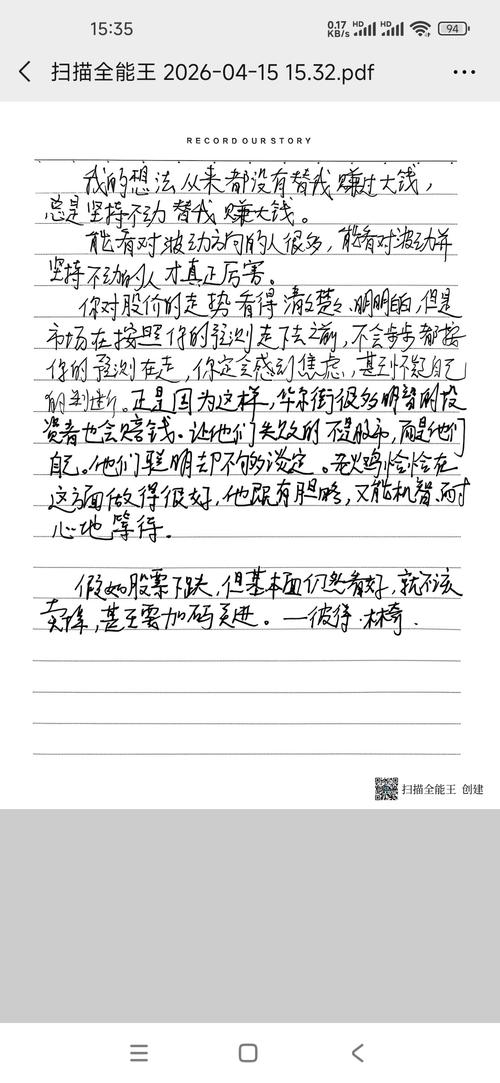 15:35
0.17 KB/s HD HD 94
扫描全能王 2026-04-15 15.32.pdf
RECORD OUR STORY
我的想法从来都没有替我赚过大钱，
总是坚持不动替我赚大钱。
能看对波动方向的人很多，能看对波动并
坚持不动的人才真正厉害。
你对股价的走势看得清清楚楚、明明白白，但是
市场在按照你的预测走下去之前，不会步步都按
你的预测在走，你定会感到焦虑，甚至怀疑自己
的判断。正是因为这样，华尔街很多明智的投
资者也会赔钱。让他们失败的不是股市，而是他们
自己。他们聪明却不够淡定。老火鸡恰恰在
这方面做得很好，他既有胆略，又能机智、耐
心地等待。
假如股票下跌，但基本面仍然看好，就不该
卖掉，甚至要加码买进。—彼得·林奇.
扫描全能王 创建